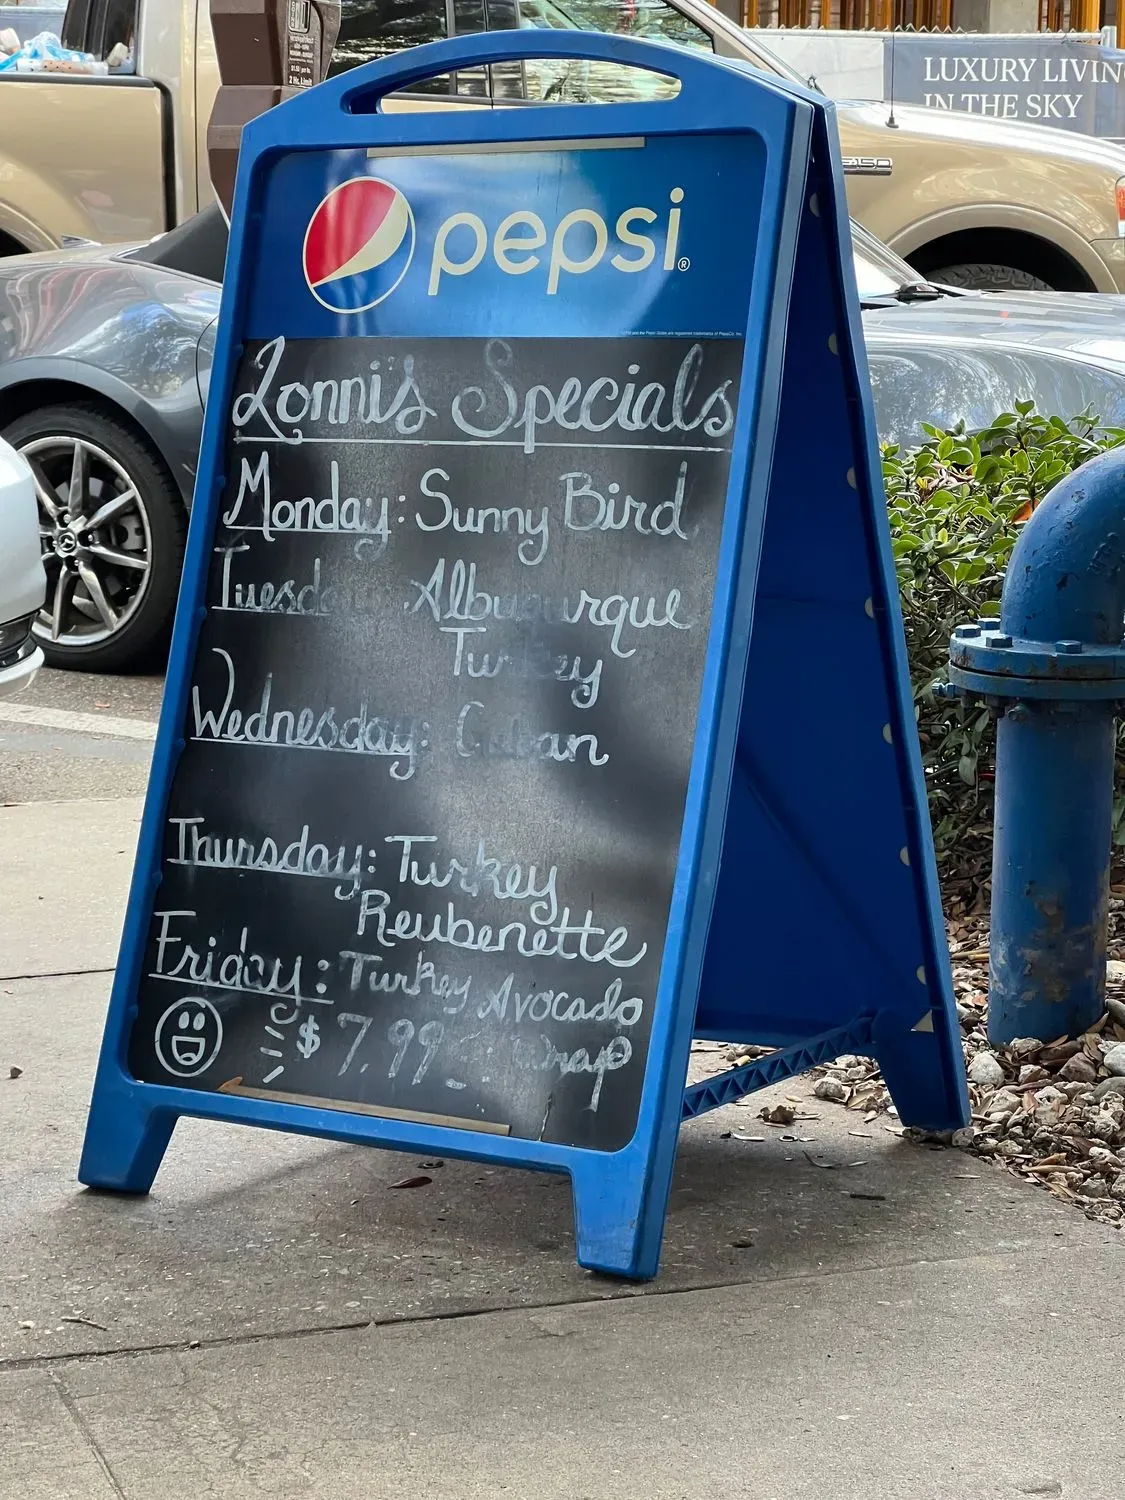 LUXURY LIVIN
IN THE SKY
2 Hr. Limit
F-150
pepsi®
Lonni's Specials
Monday: Sunny Bird
Tuesda Albu urque
Tur ey
Wednesday: Cuban
Thursday: Turkey
Reubenette
Friday: Turkey Avocado
$7.99 Wrap